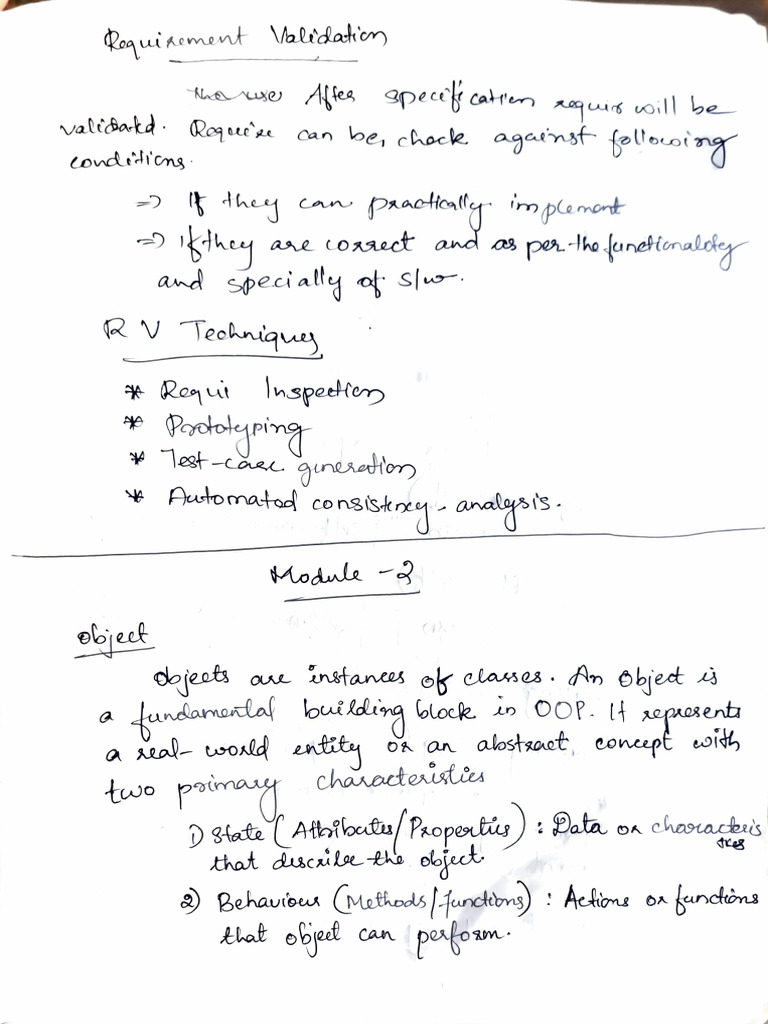 Requirement Validation
After specification requir will be
validated. Require can be, check against following
conditions.
=> If they can practically implement
=> If they are correct and as per the functionality
and specially of S/w.
R V Techniques
* Requi Inspection
* Prototyping
* Test-case generation
* Automated consistency analysis.
Module - 2
Object
Objects are instances of classes. An Object is
a fundamental building block in OOP. It represents
a real-world entity or an abstract concept with
two primary characteristics
1) State (Attributes/Properties) : Data or characteris
tics
that describe the object.
2) Behaviour (Methods/Functions) : Actions or functions
that object can perform.